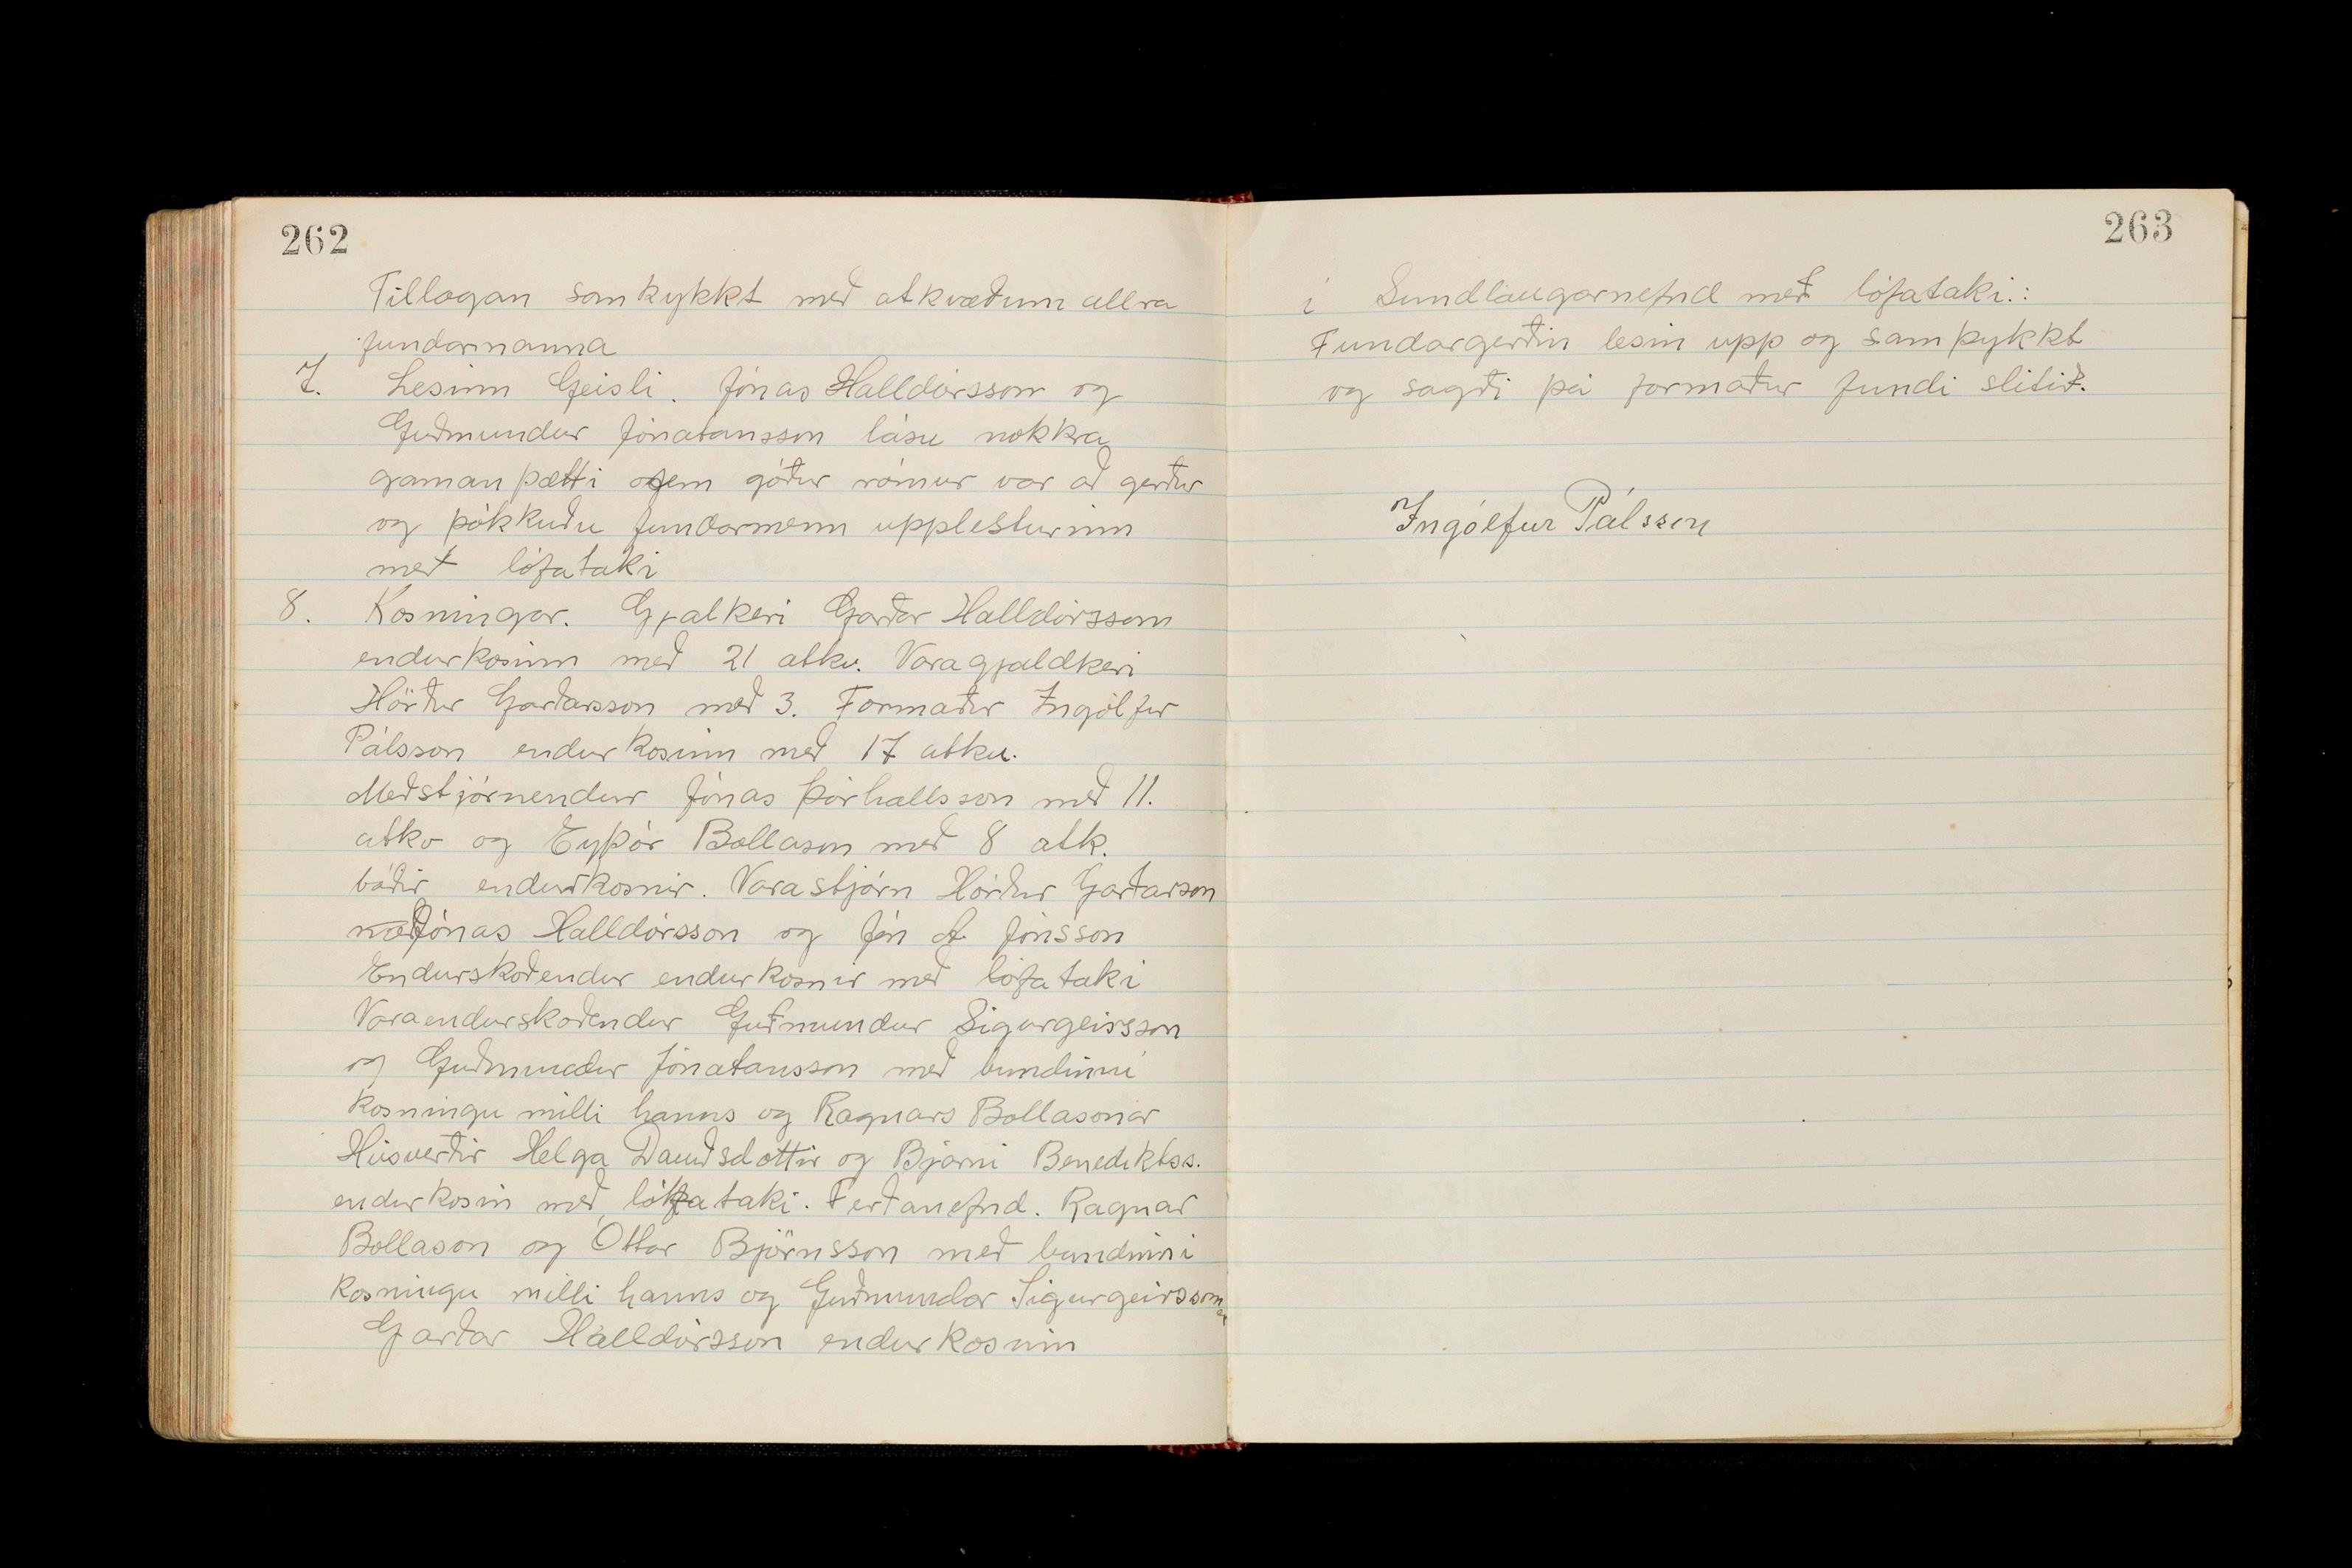 262
Tillagan samþykkt með atkvæðum allra
fundarmanna
7. Lesinn Geisli. Jónas Halldórsson og
Guðmundur Jónatansson lásu nokkra
gaman þætti sem góður rómur var að gerður
og þökkuðu fundarmenn upplesturinn
með lófataki
8. Kosningar. Gjalkeri Garðar Halldórsson
endurkosinn með 21 atkv. Varagjaldkeri
Hörður Garðarsson með 3. Formaður Ingólfur
Pálsson endurkosinn með 17 atkv.
Meðstjórnendur Jónas Þórhallsson með 11.
atkv og Eyþór Bollason með 8 atk.
báðir endurkosnir. Varastjórn Hörður Garðarson
með Jónas Halldórsson og Jón A. Jónsson
Endurskoðendur endurkosnir með lófataki
Varaendurskoðendur Guðmundur Sigurgeirsson
og Guðmundur Jónatansson með bundinni
kosningu milli hanns og Ragnars Bollasonar
Húsverðir Helga Davíðsdottir og Bjarni Benediktss.
endurkosin með lófataki. Ferðanefnd. Ragnar
Bollason og Óttar Björnsson með bundinni
kosningu milli hanns og Guðmundar Sigurgeirssonar
Garðar Halldórsson endurkosinn
263
í Sundlaugarnefnd með lófataki.:
Fundargerðin lesin upp og samþykkt
og sagði þá formaður fundi slitið.
Ingólfur Pálsson